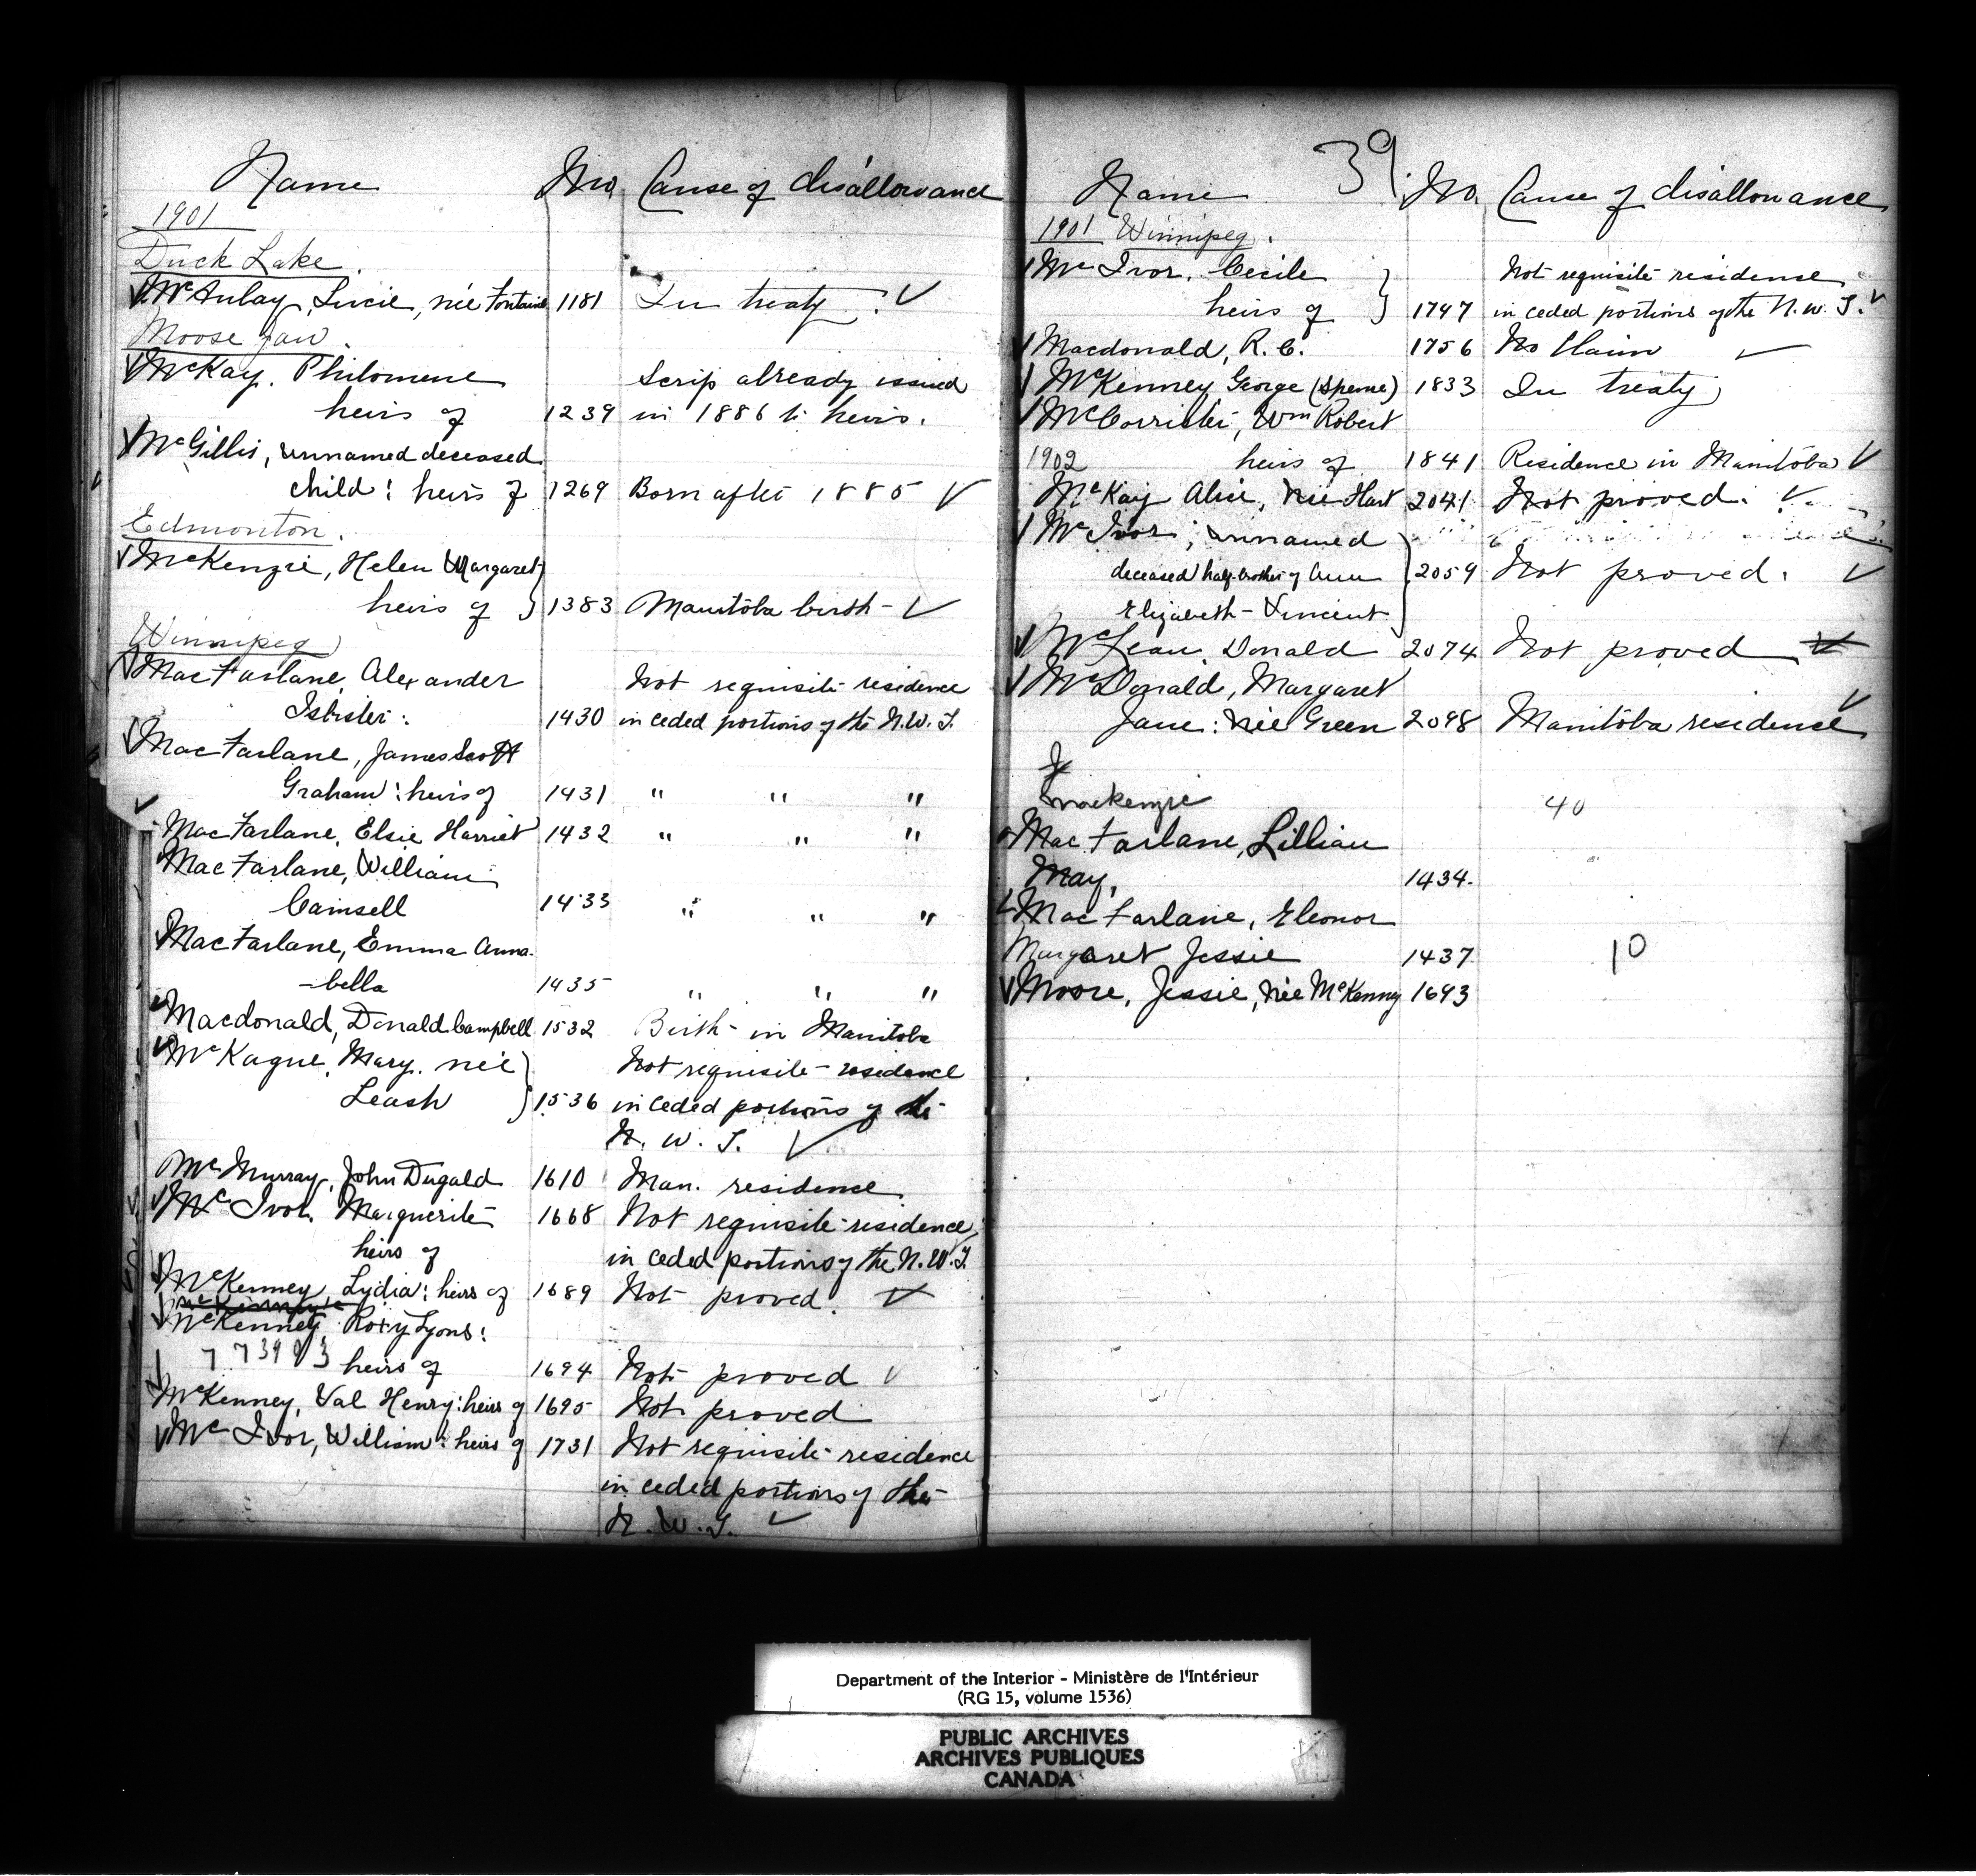 Name No. Cause of disallowance
1901
Duck Lake.
McAulay, Lucie, née Fontaine 1181 In treaty.
Moose Jaw.
McKay, Philomene Scrip already issued
heirs of 1239 in 1886 to heirs.
McGillis, unnamed deceased
child: heirs of 1269 Born after 1885
Edmonton.
McKenzie, Helen Margaret
heirs of 1383 Manitoba birth
Winnipeg
MacFarlane, Alexander Not requisite residence
Isbister: 1430 in ceded portions of the N.W.T.
MacFarlane, James Scott
Graham: heirs of 1431 " " "
MacFarlane, Elsie Harriet 1432 " " "
MacFarlane, William
Camsell 1433 " " "
MacFarlane, Emma Anna-
-bella 1435 " " "
Macdonald, Donald Campbell 1532 Birth in Manitoba
McKague, Mary, née Not requisite residence
Leash 1536 in ceded portions of the
N. W. T.
McMurray, John Dugald 1610 Man. residence
McIvor, Marguerite 1668 Not requisite residence
heirs of in ceded portions of the N.W.T.
McKenney, Lydia: heirs of 1689 Not proved.
McKenney, Roxy Lyons:
heirs of 1694 Not proved
McKenney, Val Henry: heirs of 1695 Not proved
McIvor, William: heirs of 1731 Not requisite residence
in ceded portions of the
N.W.T.
39
Name No. Cause of disallowance
1901 Winnipeg.
McIvor, Cecile Not requisite residence
heirs of 1747 in ceded portions of the N.W.T.
Macdonald, R. C. 1756 No Claim
McKenney George (Spense) 1833 In treaty
McCorrister, Wm Robert
1902 heirs of 1841 Residence in Manitoba
McKay Alice, née Hart 2041 Not proved.
McIvor; unnamed
deceased half-brother of Ann 2059 Not proved.
Elizabeth Vincent
McLean, Donald 2074 Not proved
McDonald, Margaret
Jane: née Green 2098 Manitoba residence
Mackenzie 40
MacFarlane, Lillian
May, 1434.
MacFarlane, Eleonor
Margaret Jessie 1437 10
Moore, Jessie, née McKenny 1693
Department of the Interior - Ministère de l'Intérieur
(RG 15, volume 1536)
PUBLIC ARCHIVES
ARCHIVES PUBLIQUES
CANADA